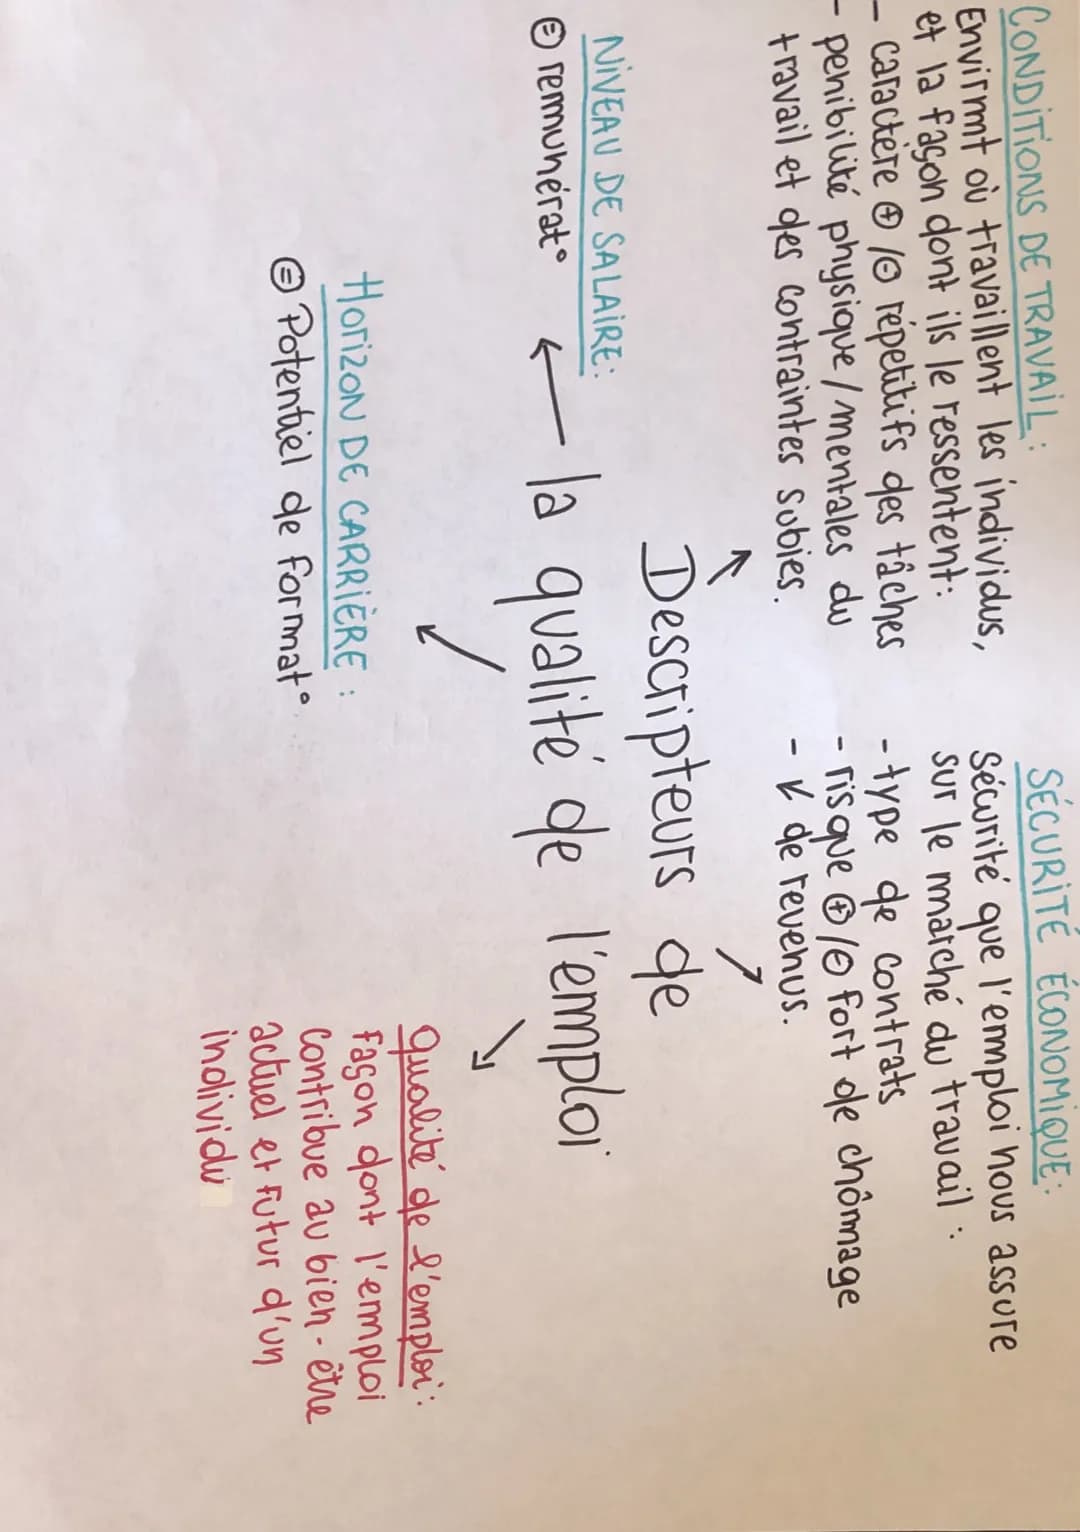 CONDITIONS DE TRAVAIL:
Envirmt où travaillent les individus,
et la façon dont ils le ressentent:
- caractère ⊕/⊖ répétitifs des tâches
- penibilité physique/mentales du
travail et des contraintes subies.
SÉCURITÉ ÉCONOMIQUE:
Sécurité que l'emploi nous assure
sur le marché du travail:
- type de contrats
- risque ⊕/⊖ fort de chômage
- ↙ de revenus.
Descripteurs de
la qualité de l'emploi
NIVEAU DE SALAIRE:
⊜ remunérat°
HORIZON DE CARRIÈRE:
⊜ Potentiel de format°
Qualité de l'emploi:
façon dont l'emploi
contribue au bien-être
actuel et futur d'un
individu